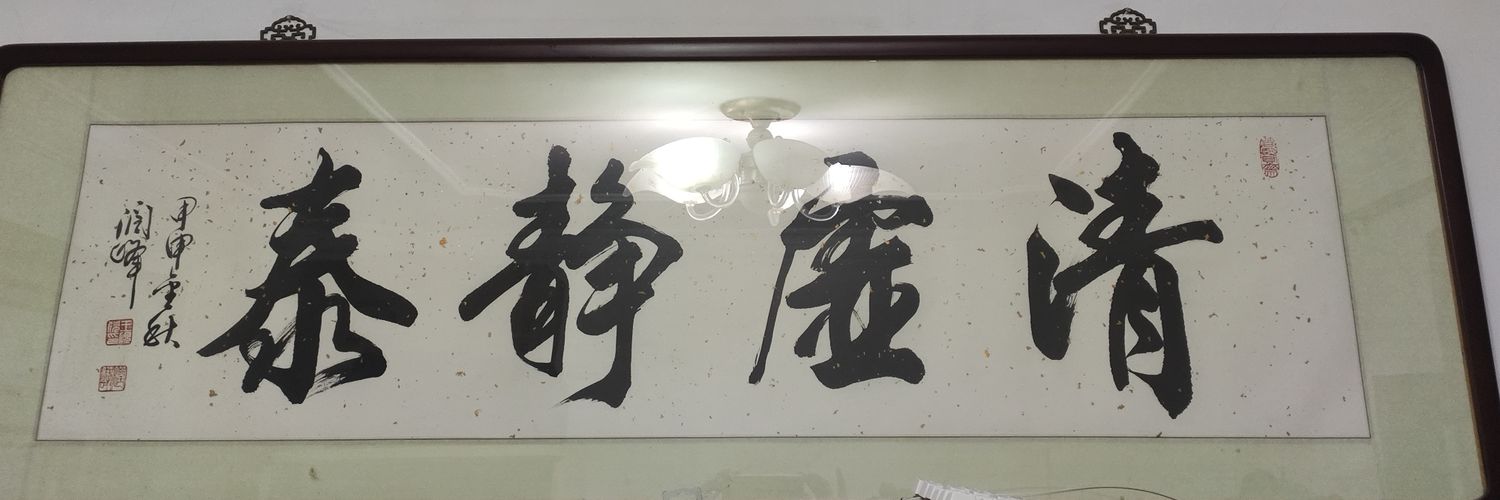 清虚静泰
甲申金秋
润峰